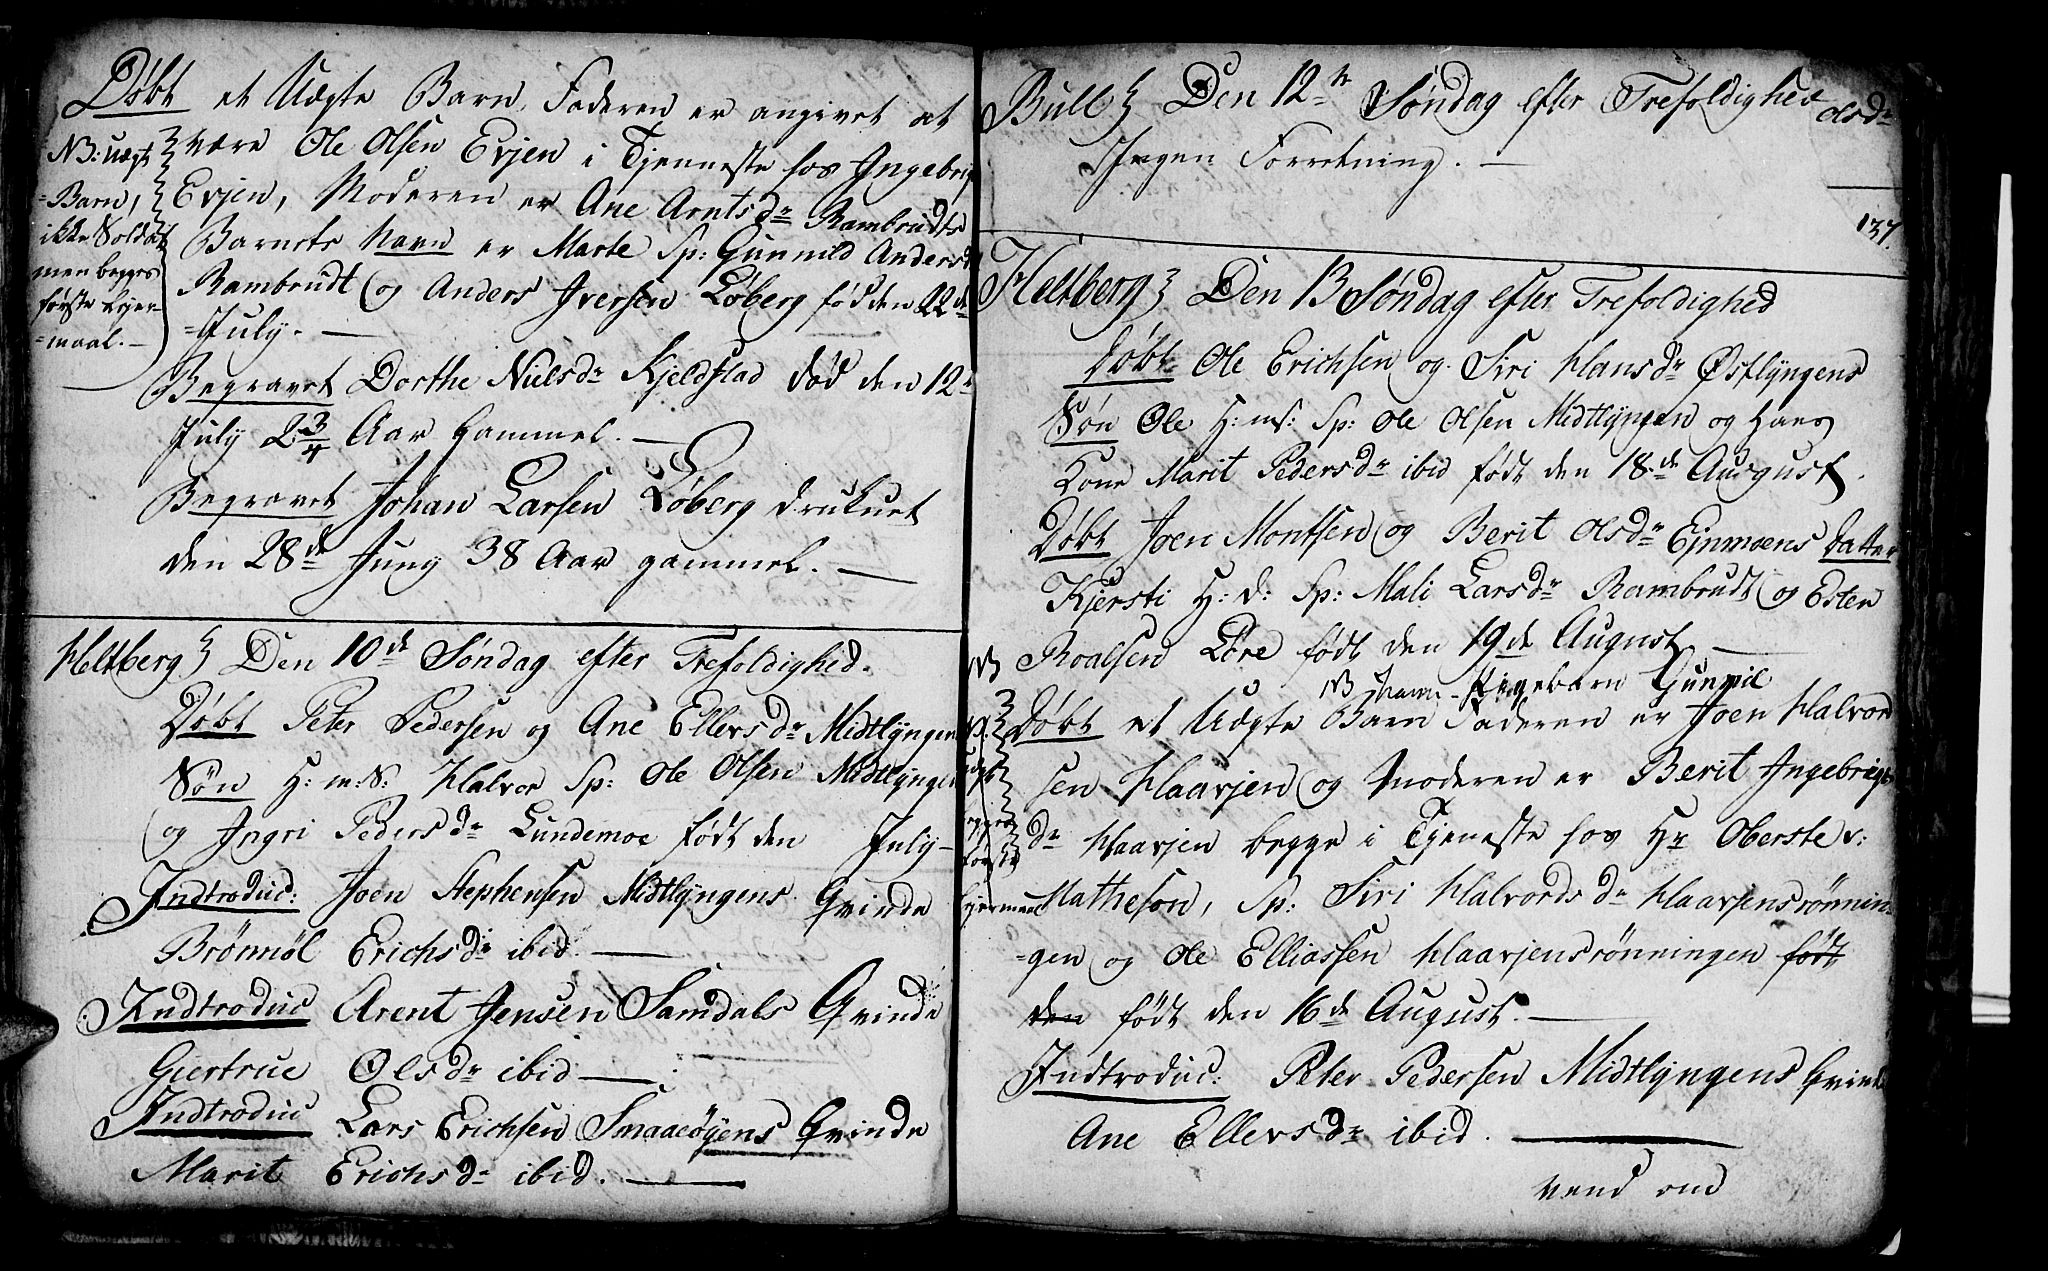 Døbt et Uægte Barn, Faderen er angivet at
være Ole Olsen Evjen i Tjenneste hos Ingebrigt
Evjen, Moderen er Ane Arntsdr Rambrudts
Barnets Navn er Marte Sp: Gunnild Andersdr
Rambrudt og Anders Iversen Løberg fød den 22de
=July. —
NB: uægt
=Barn,
ikke Soldat
men begges
første Leier=
=maal. —
Begravet Dorthe Nielsdr Kjeldstad død den 12te
July 2 3/4 Aar gammel. —
Begravet Johan Larsen Løberg druknet
den 28de Juny 38 Aar gammel. —
Heltberg } Den 10de Søndag efter Trefoldighed.
Døbt Peter Pedersen og Ane Ellevsdr Midtlyngen
Søn H: m: S: Halvor Sp: Ole Olsen Midtlyngen
og Ingri Pedersdr Lundemoe født den July —
Indtroduc: Joen Stephensen Midtlyngens Qvinde
Brønnøl Erichsdr ibid. —
Indtroduc Arent Jensen Samdals Qvinde
Giertrue Olsdr ibid —
Indtroduc Lars Erichsen Smaaeøyens Qvinde
Marit Erichsdr ibid. —
Bull } Den 12te Søndag efter Trefoldighed
Olsdr
Ingen Forretning. —
137.
Heltberg } Den 13 Søndag efter Trefoldighed
Døbt Ole Erichsen og Siri Hansdr Østlyngens
Søn Ole H: m: Sp: Ole Olsen Midtlyngen og Hans
Kone Marit Pedersdr ibid født den 18de August.
Døbt Joen Montsen og Berit Olsdr Ejnmoens Datter
Kjersti H: d: Sp: Mali Larsdr Rambrudt og Esten
Roalsen Løre født den 19de August —
NB Navn Pigebarn Gunnil
Døbt et Uægte Barn Faderen er Joen Halvord
sen Haarjen og Moderen er Berit Ingebrigts
dr Haarjen begge i Tjeneste hos Hr Oberste v:
Matheson, Sp: Siri Halvordsdr Haarjensrønnin=
=gen og Ole Elliassen Haarjensrønningen født
den født den 16de August. —
NB
begges
første
Leiermaal
Indtroduc: Peter Pedersen Midtlyngens Qvinde
Ane Ellevsdr ibid. —
vend om